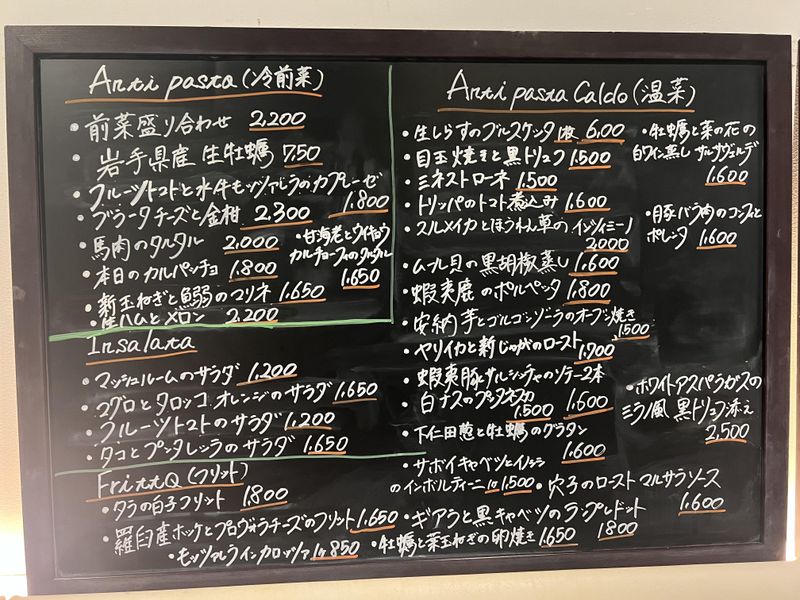 Anti pasta (冷前菜)
・前菜盛り合わせ 2,200
・岩手県産 生牡蠣 750
・フルーツトマトと水牛モッツァレラのカプレーゼ 1.800
・ブラータチーズと金柑 2,300
・馬肉のタルタル 2,000
・甘海老とウイキョウ
カルチョーフィのタルタル 1.650
・本日のカルパッチョ 1.800
・新玉ねぎと鰯のマリネ 1.650
・生ハムとメロン 2.200
Insalata
・マッシュルームのサラダ 1,200
・マグロとタロッコ オレンジのサラダ 1,650
・フルーツトマトのサラダ 1,200
・タコとプンタレッラのサラダ 1,650
FrittQ (フリット)
・タラの白子フリット 1,800
・羅臼産ホッケとプロヴォラチーズのフリット 1,650
・モッツァレラ イン カロッツァ 1ヶ 850
Anti pasta Caldo (温菜)
・生しらすのブルスケッタ 1枚 6,00
・目玉焼きと黒トリュフ 1.500
・ミネストローネ 1.500
・トリッパのトマト煮込み 1.600
・スルメイカとほうれん草の インツィミーノ 2000
・ムール貝の黒胡椒蒸し 1.600
・蝦夷鹿のポルペッタ 1.800
・安納芋とゴルゴンゾーラのオーブン焼き 1500
・ヤリイカと新じゃがのロースト 1.700
・蝦夷豚サルシッチャのソテー2本 1,600
・白ナスのプッタネスカ 1.500
・下仁田葱と牡蠣のグラタン 1.600
・サボイキャベツと
のインボルティーニ 1ヶ 1,500
・穴子のロースト マルサラソース 1.600
・ギアラと黒キャベツのランプレドット 1800
・牡蠣と葉玉ねぎの卵焼き 1.650
・牡蠣と菜の花の
白ワイン蒸し サルサヴェルデ 1.600
・豚バラ肉のコンフィと
ポレンタ 1.600
・ホワイトアスパラガスの
ミラノ風 黒トリュフ添え 2,500